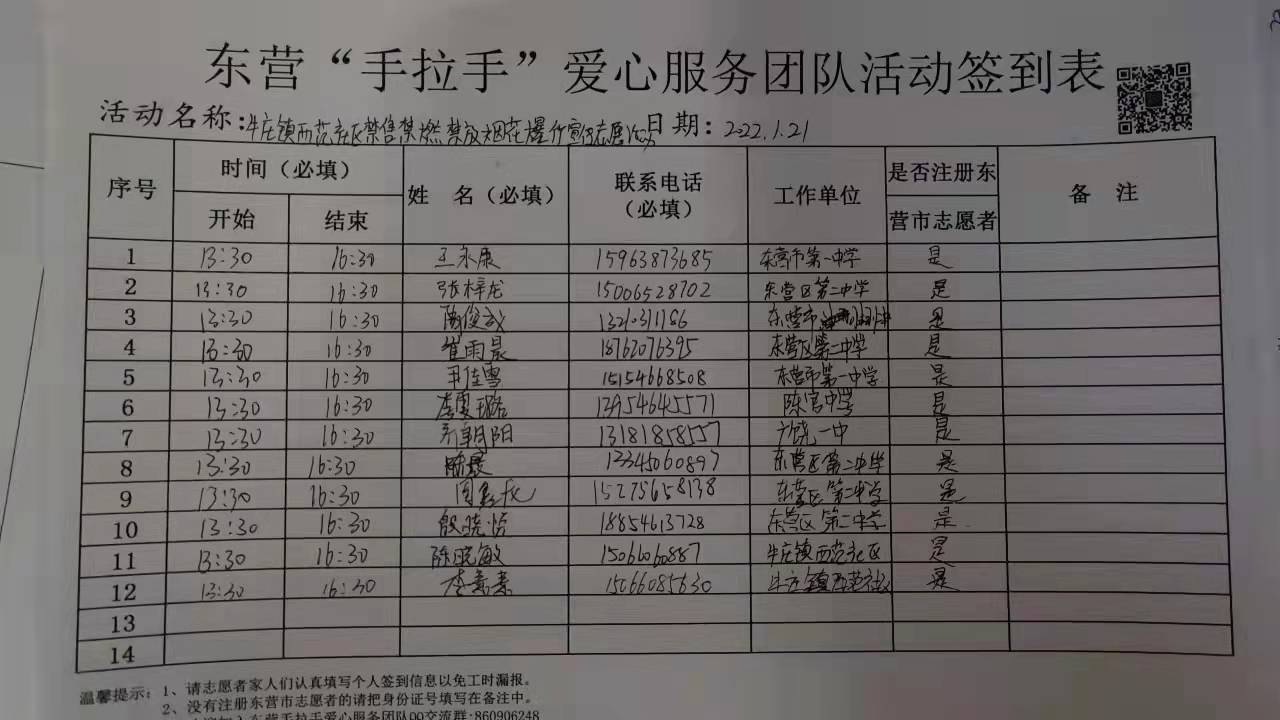 东营“手拉手”爱心服务团队活动签到表
活动名称:牛庄镇西范社区禁售禁燃禁放烟花爆竹宣传志愿活动 日期:2022.1.21
序号 时间(必填) 姓 名(必填) 联系电话(必填) 工作单位 是否注册东营市志愿者 备 注
开始 结束
1 13:30 16:30 王永康 15963873685 东营市第一中学 是
2 13:30 16:30 张梓龙 15006528702 东营区第二中学 是
3 13:30 16:30 13210311786 东营市 是
4 13:30 16:30 崔雨晨 18762076395 东营区第二中学 是
5 13:30 16:30 王佳雪 15154668508 东营市第一中学 是
6 13:30 16:30 李夏璐 13954645571 陈官中学 是
7 13:30 16:30 朝阳 13181858557 广饶一中 是
8 13:30 16:30 13345060897 东营区第二中学 是
9 13:30 16:30 周 15275658138 东营区第二中学 是
10 13:30 16:30 殷晓 18854613728 东营区第二中学 是
11 13:30 16:30 陈晓敏 15066060887 牛庄镇西范社区 是
12 13:30 16:30 李 15066085630 牛庄镇西范社区 是
13
14
温馨提示:1、请志愿者家人们认真填写个人签到信息以免工时漏报。
2、没有注册东营市志愿者的请把身份证号填写在备注中。
东营手拉手爱心服务团队QQ交流群:860906248